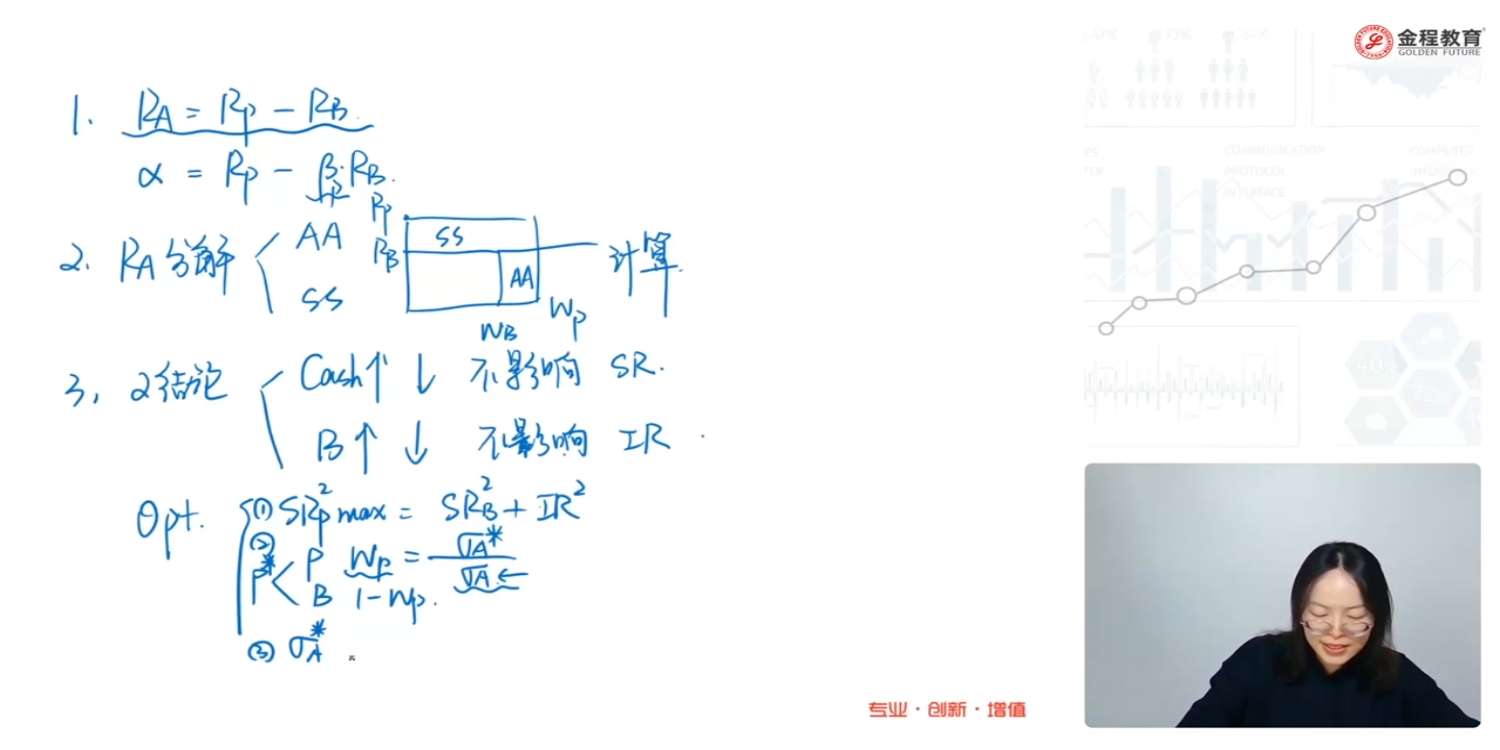 金程教育
GOLDEN FUTURE
1. R_A = R_P - R_B.
α = R_P - β_P·R_B.
2. R_A分解 AA SS
R_P SS
R_B AA
W_B W_P
计算.
3, 2结论 Cash↑ ↓ 不影响 SR.
B↑ ↓ 不影响 IR
Opt. ① SR_P² max = SR_B² + IR²
② P* < P W_P = σ_A* / σ_A ←
B 1 - W_P.
③ σ_A*
专业·创新·增值